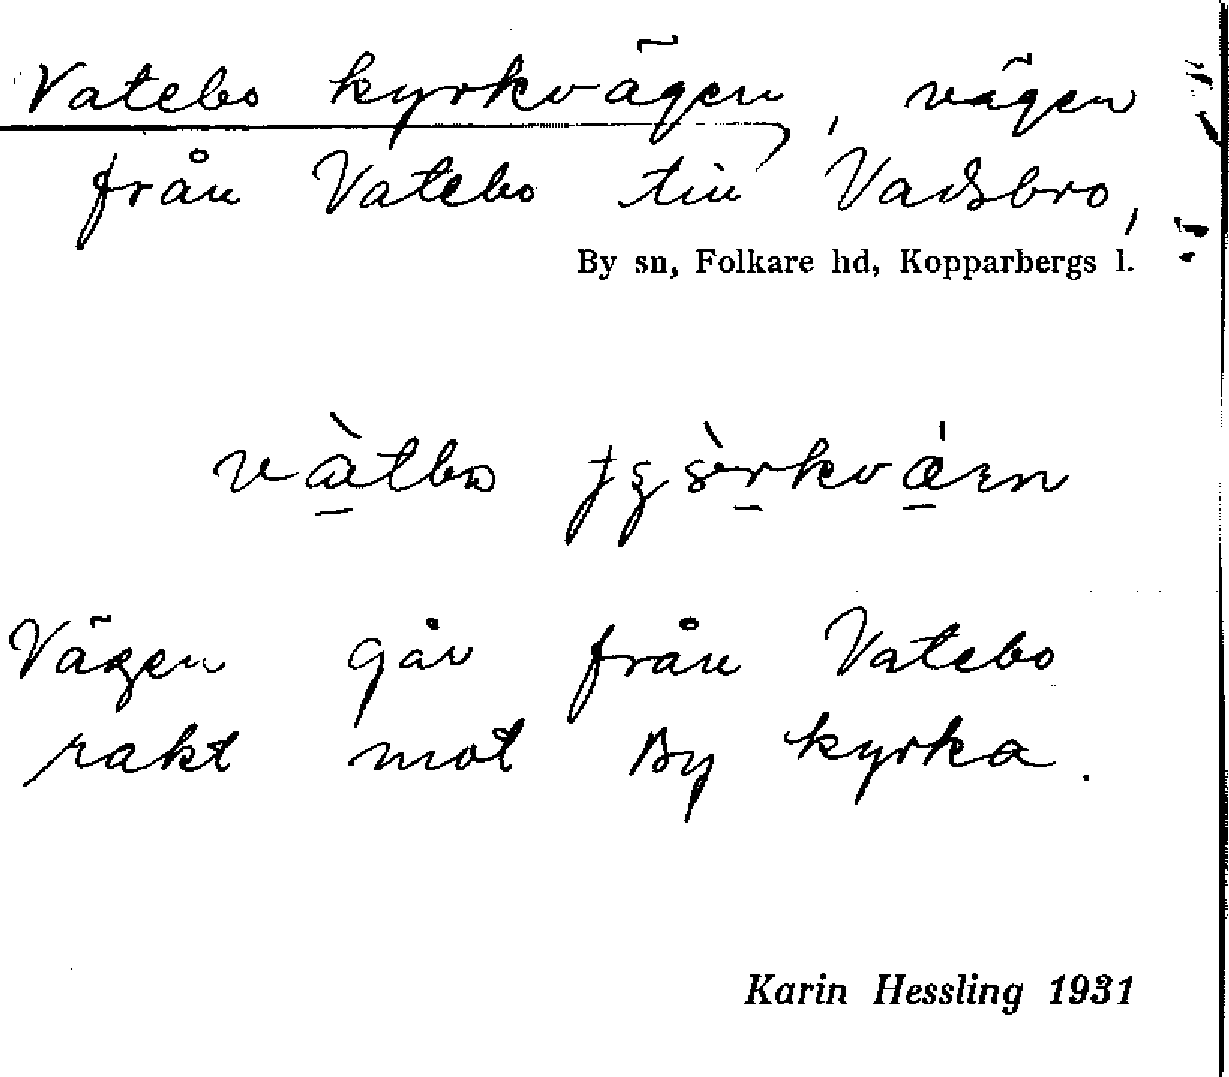 Vatebo kyrkvägen, vägen
från Vatebo till Vadsbro,
By sn, Folkare hd, Kopparbergs l.
Vägen går från Vatebo
rakt mot By kyrka.
Karin Hessling 1931